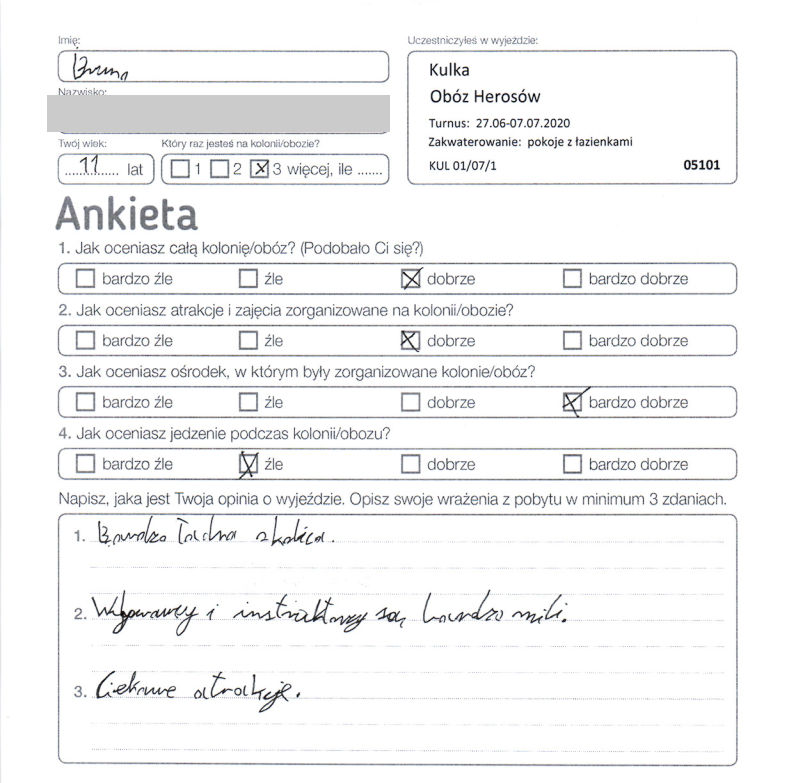 Imię:
Bruno
Nazwisko:
Twój wiek:
11 lat
Który raz jesteś na kolonii/obozie?
1 2 3 więcej, ile .......
Uczestniczyłeś w wyjeździe:
Kulka
Obóz Herosów
Turnus: 27.06-07.07.2020
Zakwaterowanie: pokoje z łazienkami
KUL 01/07/1 05101
Ankieta
1. Jak oceniasz całą kolonię/obóz? (Podobało Ci się?)
bardzo źle źle dobrze bardzo dobrze
2. Jak oceniasz atrakcje i zajęcia zorganizowane na kolonii/obozie?
bardzo źle źle dobrze bardzo dobrze
3. Jak oceniasz ośrodek, w którym były zorganizowane kolonie/obóz?
bardzo źle źle dobrze bardzo dobrze
4. Jak oceniasz jedzenie podczas kolonii/obozu?
bardzo źle źle dobrze bardzo dobrze
Napisz, jaka jest Twoja opinia o wyjeździe. Opisz swoje wrażenia z pobytu w minimum 3 zdaniach.
1. Bardzo ładna okolica.
2. i instruktorzy są bardzo mili.
3. Ciekawe atrakcje.